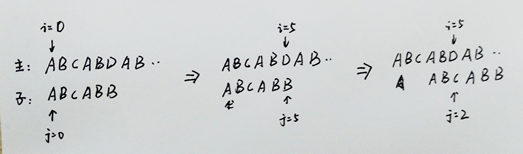 i=0
主: ABCABDAB..
子: ABCABB
j=0
⇒
i=5
ABCABDAB..
ABCABB
j=5
⇒
i=5
ABCABDAB..
ABCABB
j=2